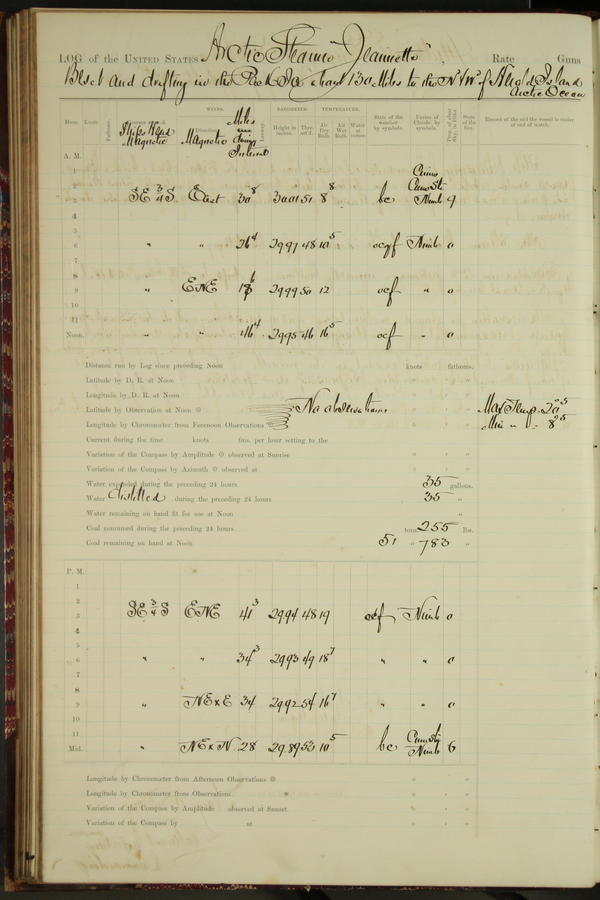 LOG of the UNITED STATES Arctic Steamer "Jeannette" Rate Guns
Beset and drifting in the Pack Ice about 130 Miles to the N.W. of Herald Island
Arctic Ocean
WINDS. BAROMETER. TEMPERATURE.
Hour. Knots. Ships Head Magnetic Direction Magnetic Miles during Interval Height in inches. Ther. att'd. Air Dry Bulb. Air Wet Bulb. Water at State of the weather by symbols. Forms of Clouds by symbols. State of the Sea. Record of the sail the vessel is under at end of watch.
A. M.
1
2 Cirro
3 SE 3/4 S East 30 8 30.01 51 8 8 bc Cum Sti Nimb 9
4
5
6 " " 26 4 29.97 48 10 5 ocqf Nimb 0
7
8
9 " ENE 18 6 29.99 50 12 ocf " 0
10
11
Noon. " " 46 4 29.95 46 16 5 ocf " 0
Distance run by Log since preceding Noon knots fathoms.
Latitude by D. R. at Noon
Longitude by D. R. at Noon
Latitude by Observation at Noon No observations Max Temp. 20° 5
Longitude by Chronometer from Forenoon Observations Min " " 8° 5
Current during the time knots fms. per hour setting to the
Variation of the Compass by Amplitude observed at Sunrise
Variation of the Compass by Azimuth observed at
Water expended during the preceding 24 hours 35 gallons.
Water distilled during the preceding 24 hours 35 "
Water remaining on hand fit for use at Noon "
Coal consumed during the preceding 24 hours tons 255 lbs.
Coal remaining on hand at Noon 51 " 783 "
P. M.
1
2
3 SE 3/4 S ENE 41 3 29.94 48 19 ocf Nimb 0
4
5
6 " " 34 3 29.93 49 18 7 " " 0
7
8
9 " NE x E 34 29.92 54 16 7 " " 0
10
11 Cum Sti
Mid. " NE x N. 28 29.89 53 10 5 bc Nimb 6
Longitude by Chronometer from Afternoon Observations
Longitude by Chronometer from Observations
Variation of the Compass by Amplitude observed at Sunset
Variation of the Compass by at